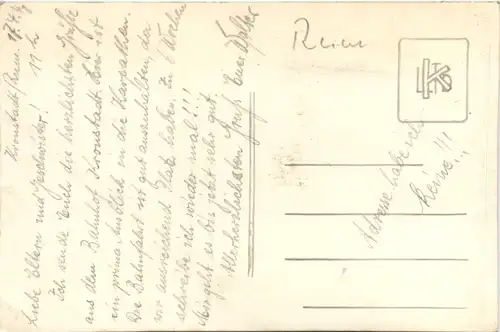 Kronstadt/Rum. 17.4.
19 h
Liebe Eltern und Geschwister!
Ich sende Euch die herzlichsten Grüße
aus dem Bahnhof Kronstadt. Hier ist
ein prima Anblick in die Karpathen.
Die Bahnfahrt ist gut auszuhalten, da
wir ausreichend Platz haben. In 6 Wochen
schreibe ich wieder mal!!!
Mir geht es bis jetzt sehr gut
Allerherzlichsten Gruß Euer Walter
Adresse habe ich
keine!!!